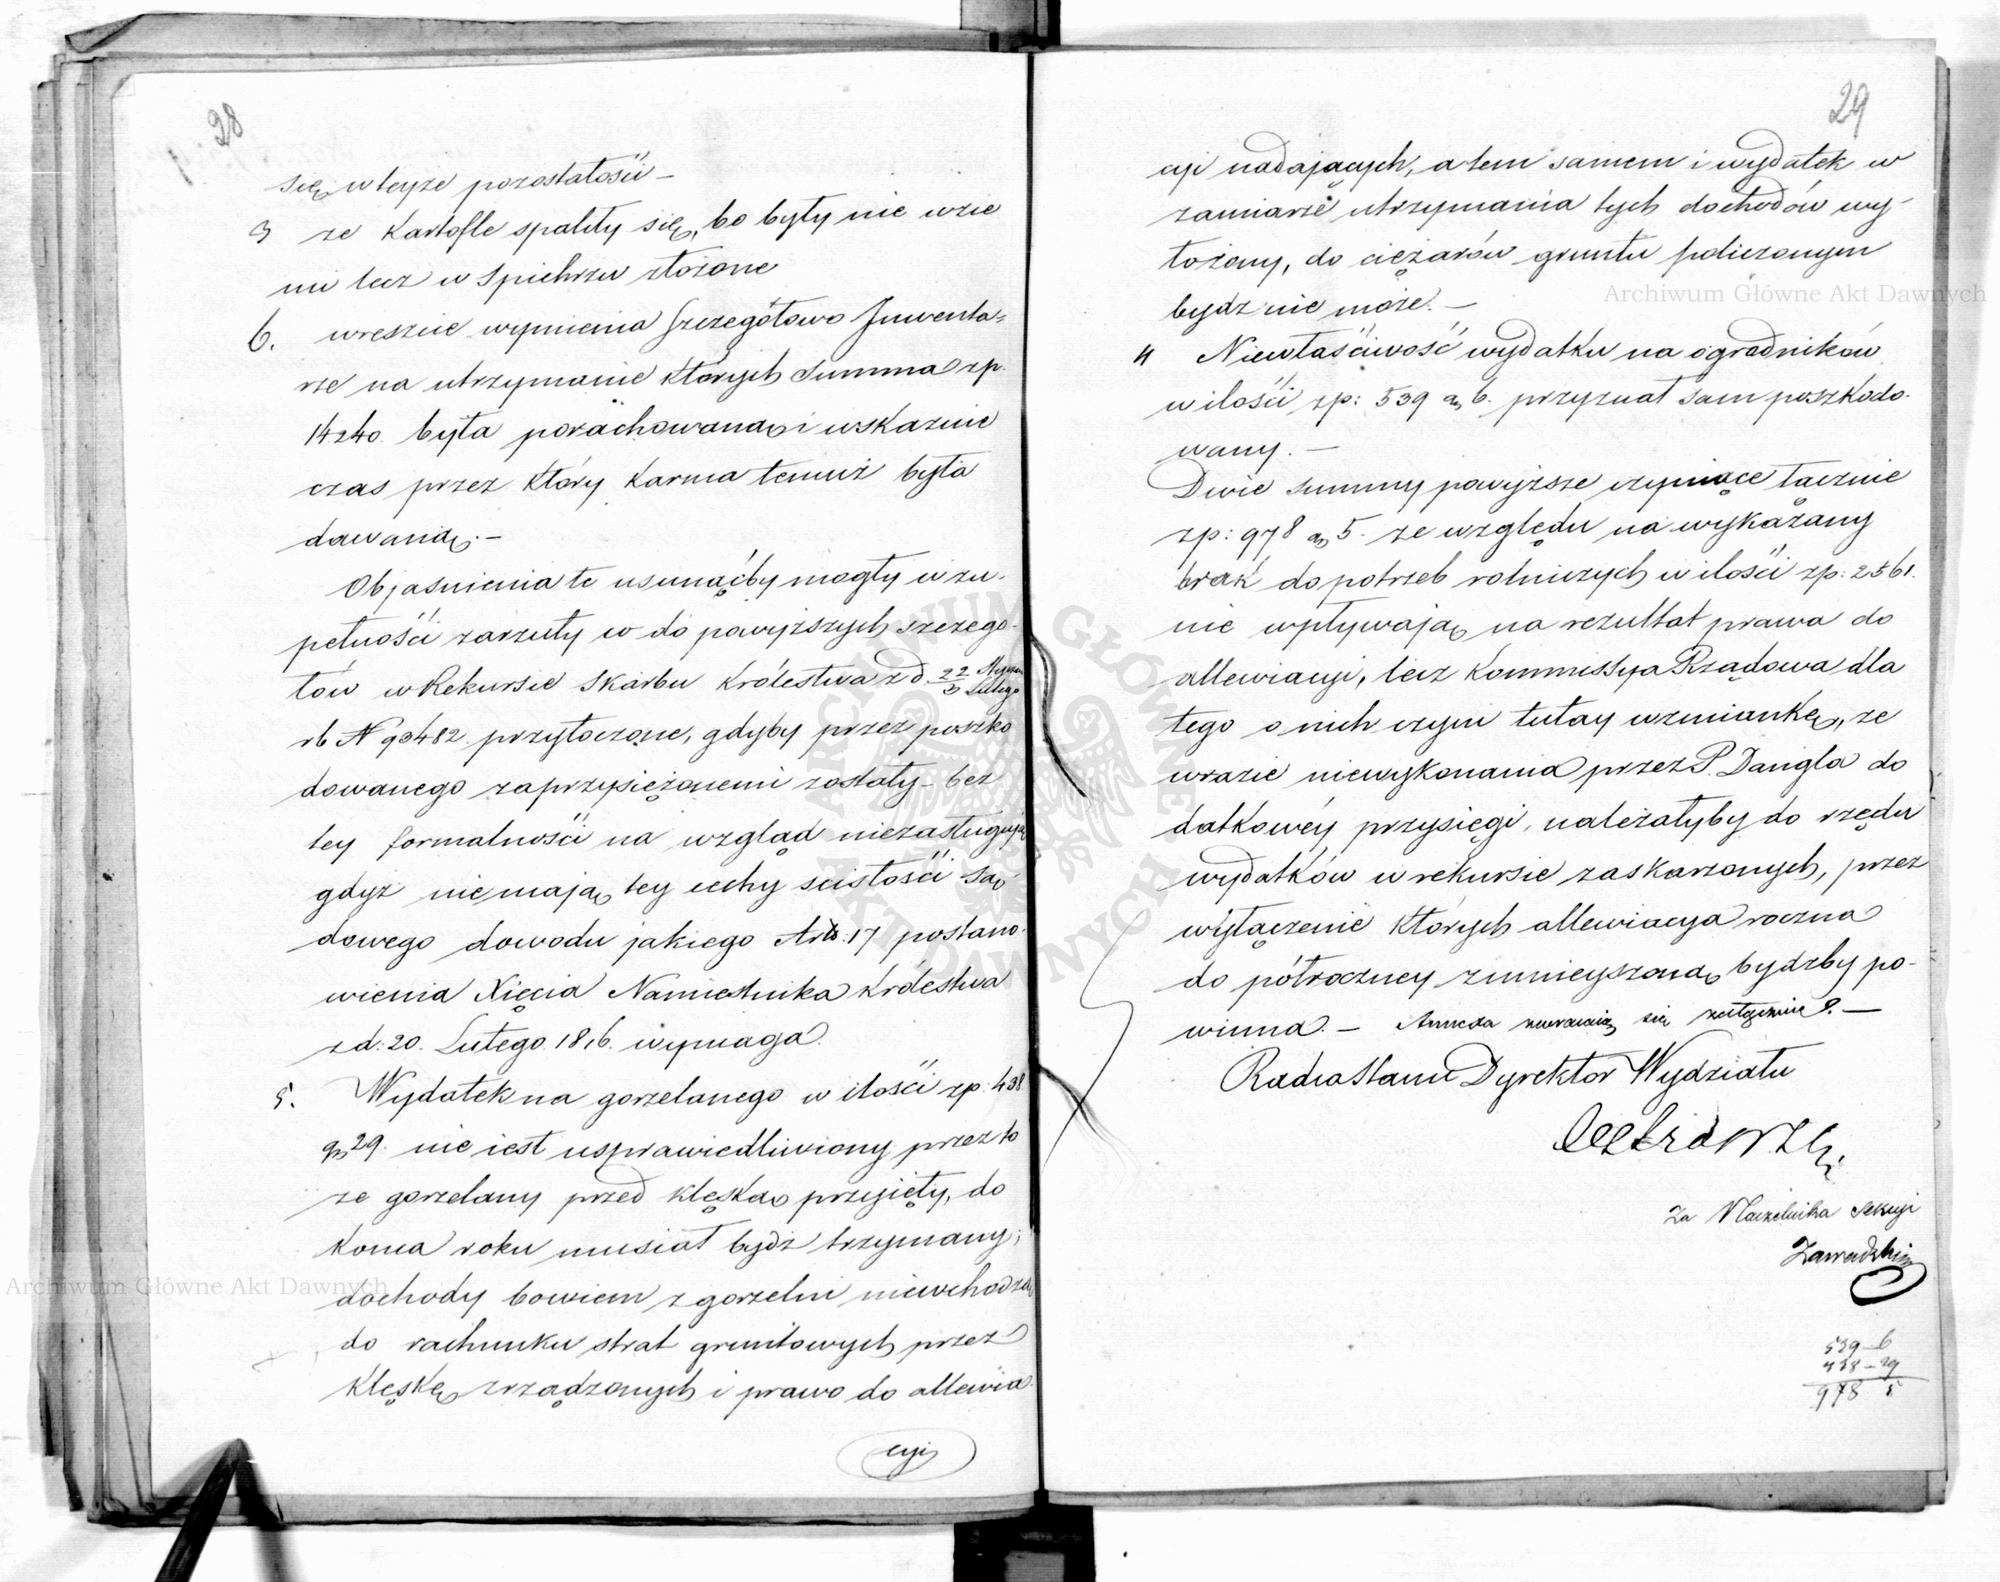 28
się w teyże pozostałości –
3 że Kartofle spality się, bo były nie w zie
mi lecz w Spichrzu złożone
6. wreszcie wymienia szczegółowo Inwenta=
rze na utrzymanie których Summa zp.
14240. była porachowaną i wskaznie
czas przez który Karma temuż była
dawaną. –
Objasnienia te usunąćby mogły w zu-
pełności zarzuty w do powyższych szczego-
łów w Rekursie Skarbu Królestwa z d. 22/3 Lutego
rb N 90482 przytoczone, gdyby przez poszko
dowanego zaprzysiężonemi zostały – bez
tey formalności na wzgląd niezasługują
gdyż nie mają tey cechy scisłości są-
dowego dowodu jakiego Art: 17 postano-
wienia Xięcia Namiestnika Królestwa
z d: 20. Lutego 1816. wymaga.
5. Wydatek na gorzelanego w ilości zp. 438
gr 29. nie iest usprawiedliwiony przez to
że gorzelany przed klęską przyięty, do
Konca roku musiał bydź trzymany;
dochody bowiem z gorzelni niewchodzą
do rachunku strat gruntowych przez
Klęskę zrządzonych i prawo do allewia-
cyi
29
cyi nadających, a tem samem i wydatek w
zamiarze utrzymania tych dochodów wy-
łożony, do ciężarów gruntu policzonym
bydz nie może. –
4 Niewłaściwość wydatku na ogrodników
w ilości zp: 539 gr 6. przyznał sam poszkodo-
wany. –
Dwie summy powyższe czyniące łącznie
zp: 978 gr 5. ze względu na wykazany
brak do potrzeb rolniczych w ilości zp: 2561.
nie wpływają na rezultat prawa do
allewiacyi, lecz Kommissya Rządowa dla
tego o nich czyni tutay wzmiankę, że
w razie niewykonania przez P. Dangla do
datkowéy przysięgi, należałyby do rzędu
wydatków w rekursie zaskarzonych, przez
wyłączenie których allewiacya roczna
do półroczney zmnieyszoną bydzby po-
winna. – Annexa zwracaią się załącznie. –
Radca Stanu Dyrektor Wydziału
Za Naczelnika Sekcyi
Zawadzki
539–6
438–29
978 5
Archiwum Główne Akt Dawnych
Archiwum Główne Akt Dawnych
ARCHIWUM GŁÓWNE
AKT DAWNYCH